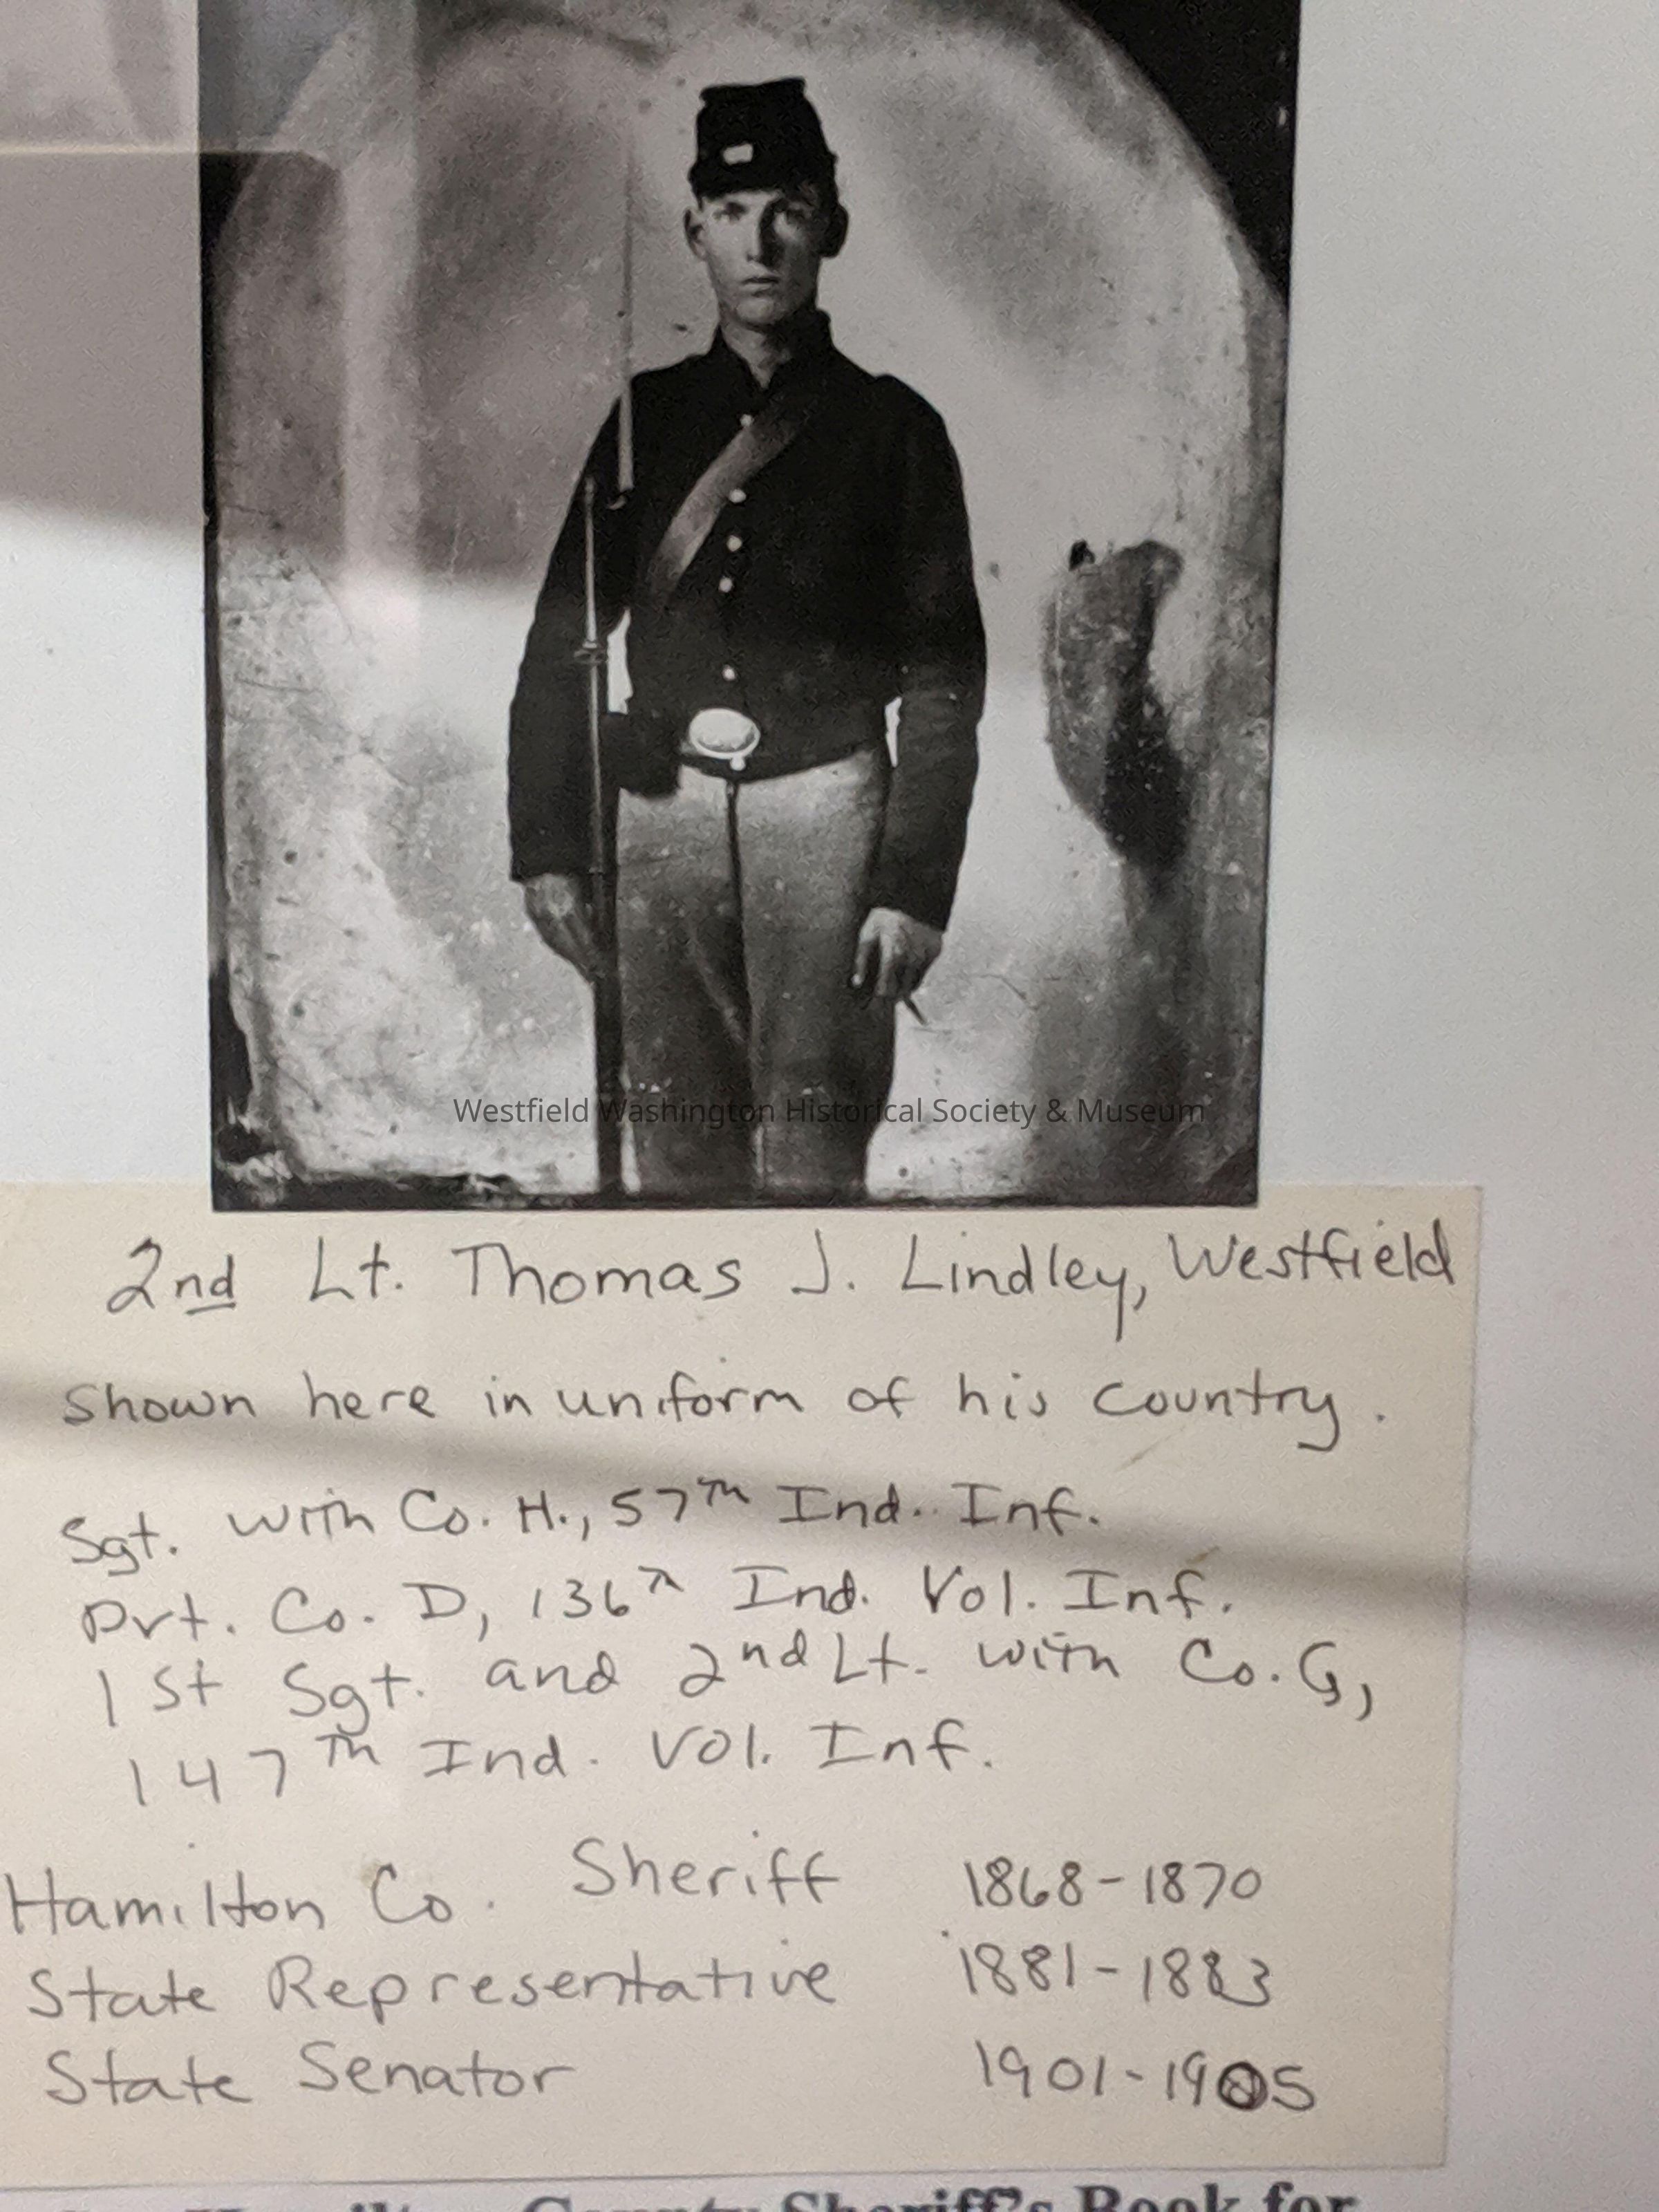 Westfield Washington Historical Society & Museum
2nd Lt. Thomas J. Lindley, Westfield
Shown here in uniform of his country.
Sgt. with Co. H., 57th Ind. Inf.
Pvt. Co. D, 136th Ind. Vol. Inf.
1st Sgt. and 2nd Lt. with Co. G,
147th Ind. Vol. Inf.
Hamilton Co. Sheriff 1868-1870
State Representative 1881-1883
State Senator 1901-1905
County Sheriff's Book for